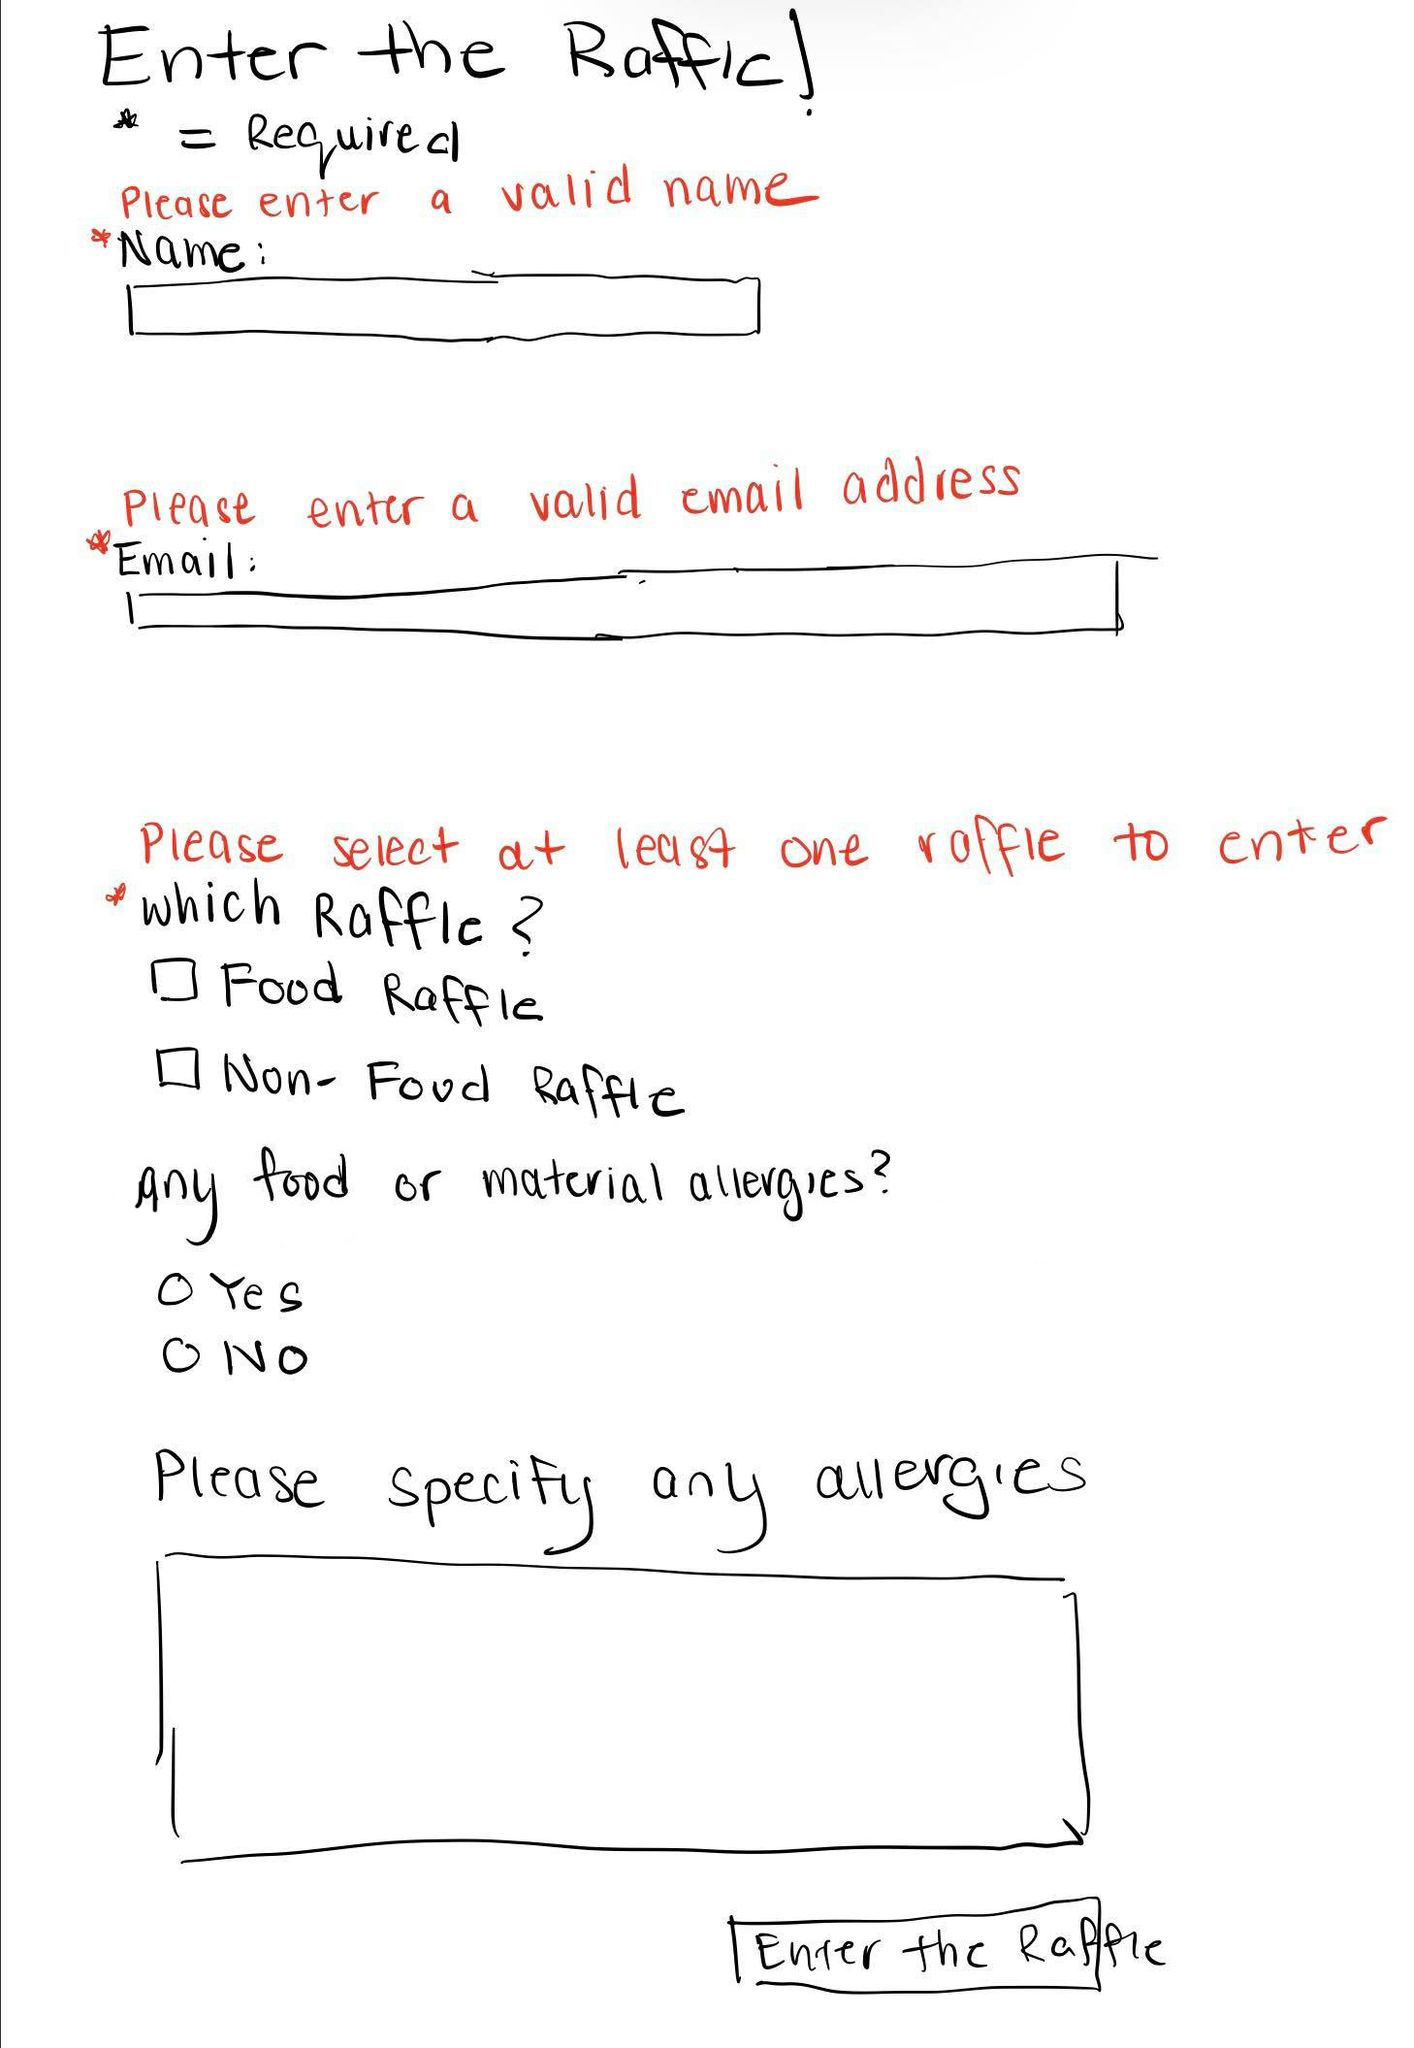 Enter the Raffle!
* = Required
Please enter a valid name
*Name:
Please enter a valid email address
*Email:
Please select at least one raffle to enter
*Which Raffle?
Food Raffle
Non-Food Raffle
Any food or material allergies?
Yes
No
Please specify any allergies
Enter the Raffle